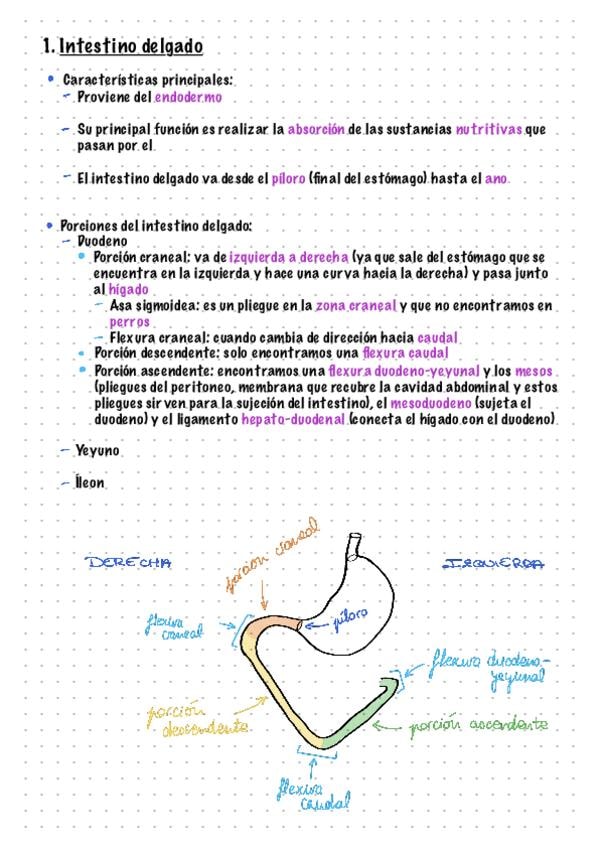 1. Intestino delgado
• Características principales:
– Proviene del endodermo
– Su principal función es realizar la absorción de las sustancias nutritivas que
pasan por el
– El intestino delgado va desde el píloro (final del estómago) hasta el ano
• Porciones del intestino delgado:
– Duodeno
• Porción craneal: va de izquierda a derecha (ya que sale del estómago que se
encuentra en la izquierda y hace una curva hacia la derecha) y pasa junto
al hígado
– Asa sigmoidea: es un pliegue en la zona craneal y que no encontramos en
perros
– Flexura craneal: cuando cambia de dirección hacia caudal
• Porción descendente: solo encontramos una flexura caudal
• Porción ascendente: encontramos una flexura duodeno-yeyunal y los mesos
(pliegues del peritoneo, membrana que recubre la cavidad abdominal y estos
pliegues sirven para la sujeción del intestino), el mesoduodeno (sujeta el
duodeno) y el ligamento hepato-duodenal (conecta el hígado con el duodeno)
– Yeyuno
– Íleon
porción craneal
DERECHA
IZQUIERDA
flexura
craneal
píloro
flexura duodeno-
yeyunal
porción
descendente
porción ascendente
flexura
caudal